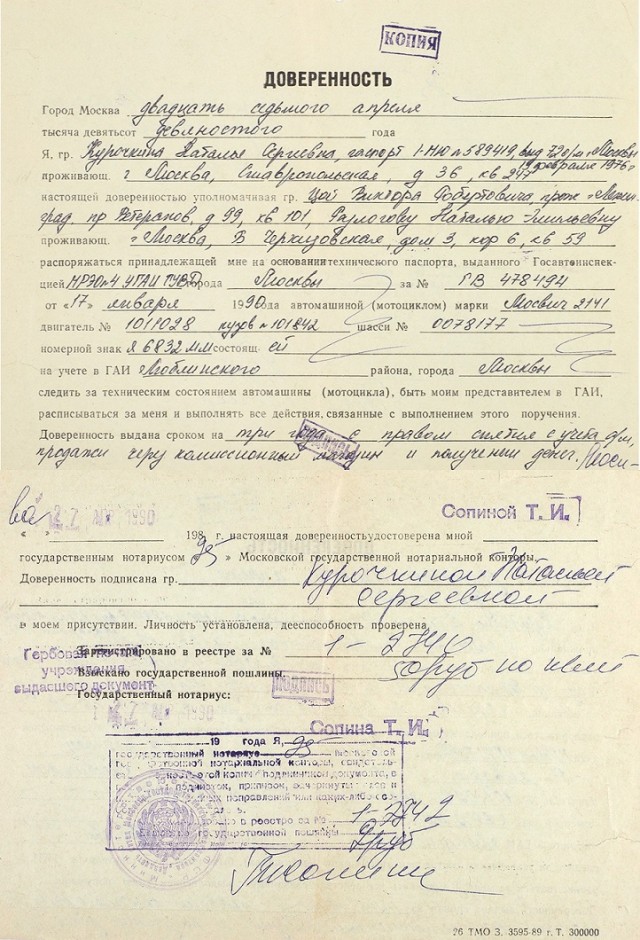 КОПИЯ
ДОВЕРЕННОСТЬ
Город Москва двадцать седьмого апреля
тысяча девятьсот девяностого года
Я, гр. Курочкина Наталья Сергеевна, паспорт 1-МЮ № 589419, выд 72 о/м г. Москвы
19 февраля 1976г
проживающ. г Москва, Ставропольская, д 36, кв 247
настоящей доверенностью уполномачивая гр. Цой Виктора Робертовича, прож г Ленин-
град, пр Ветеранов, д 99, кв 101, Разлогову Наталью Эмильевну
проживающ. г Москва, Б Черкизовская, дом 3, кор 6, кв 59
распоряжаться принадлежащей мне на основании технического паспорта, выданного Госавтоинспек-
цией МРЭО №4 УГАИ ГУВД города Москвы за № ГВ 478494
от «17» января 1990 года автомашиной (мотоциклом) марки Москвич 2141
двигатель № 1011028 кузов № 101842 шасси № 0078177
номерной знак Я 6832 ММ состоящ ей
на учете в ГАИ Люблинского района, города Москвы
следить за техническим состоянием автомашины (мотоцикла), быть моим представителем в ГАИ,
расписываться за меня и выполнять все действия, связанные с выполнением этого поручения.
Доверенность выдана сроком на три года с правом снятия с учета а/м,
продажи через комиссионный магазин и получении денег.
27 1990 Сопиной Т. И.
« » 198 г. настоящая доверенность удостоверена мной
государственным нотариусом » Московской государственной нотариальной конторы.
Доверенность подписана гр. Курочкиной Натальей
Сергеевной
в моем присутствии. Личность установлена, дееспособность проверена
Зарегистрировано в реестре за № 1-2740
Гербовая печать
учреждения
выдавшего документ
Взыскано государственной пошлины
Государственный нотариус: ПОДПИСЬ
27 1990
Сопина Т. И.
19 года Я,
государственный нотариус
государственной нотариальной конторы,
копии с подлинником документа, в
подчисток, приписок, зачеркнутых слов и
в реестре за № 1-2742
государственной пошлины
26 ТМО З. 3595-89 г. Т. 300000